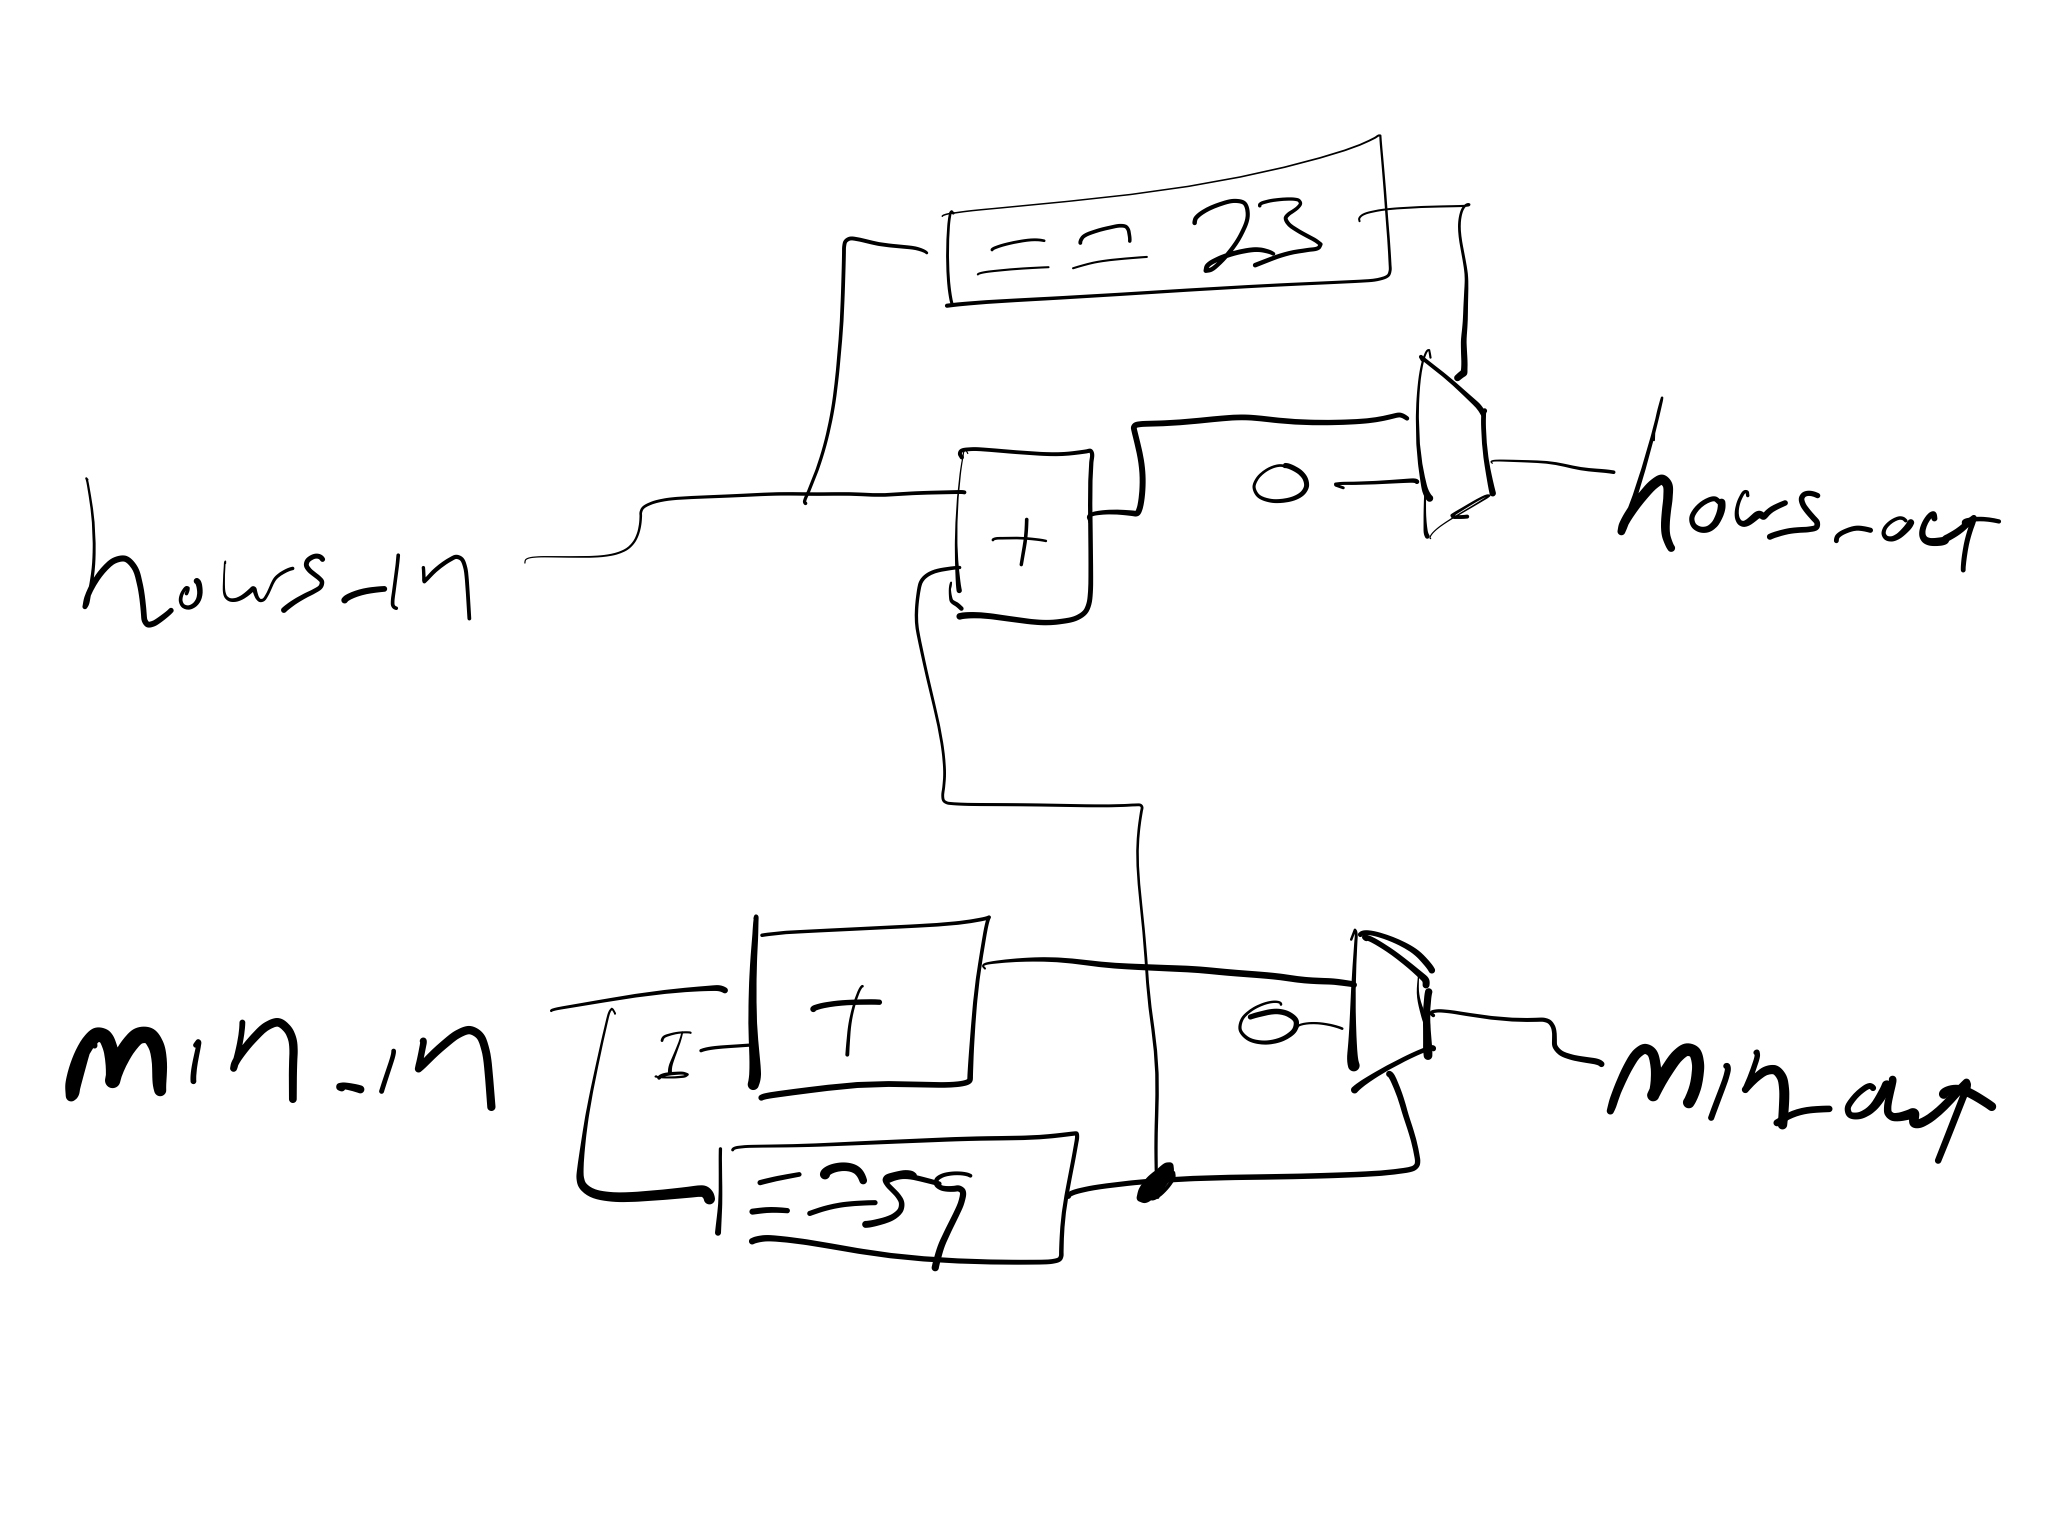 == 23
hours_in
+
0
hours_out
min_in
+
1
0
min_out
== 59